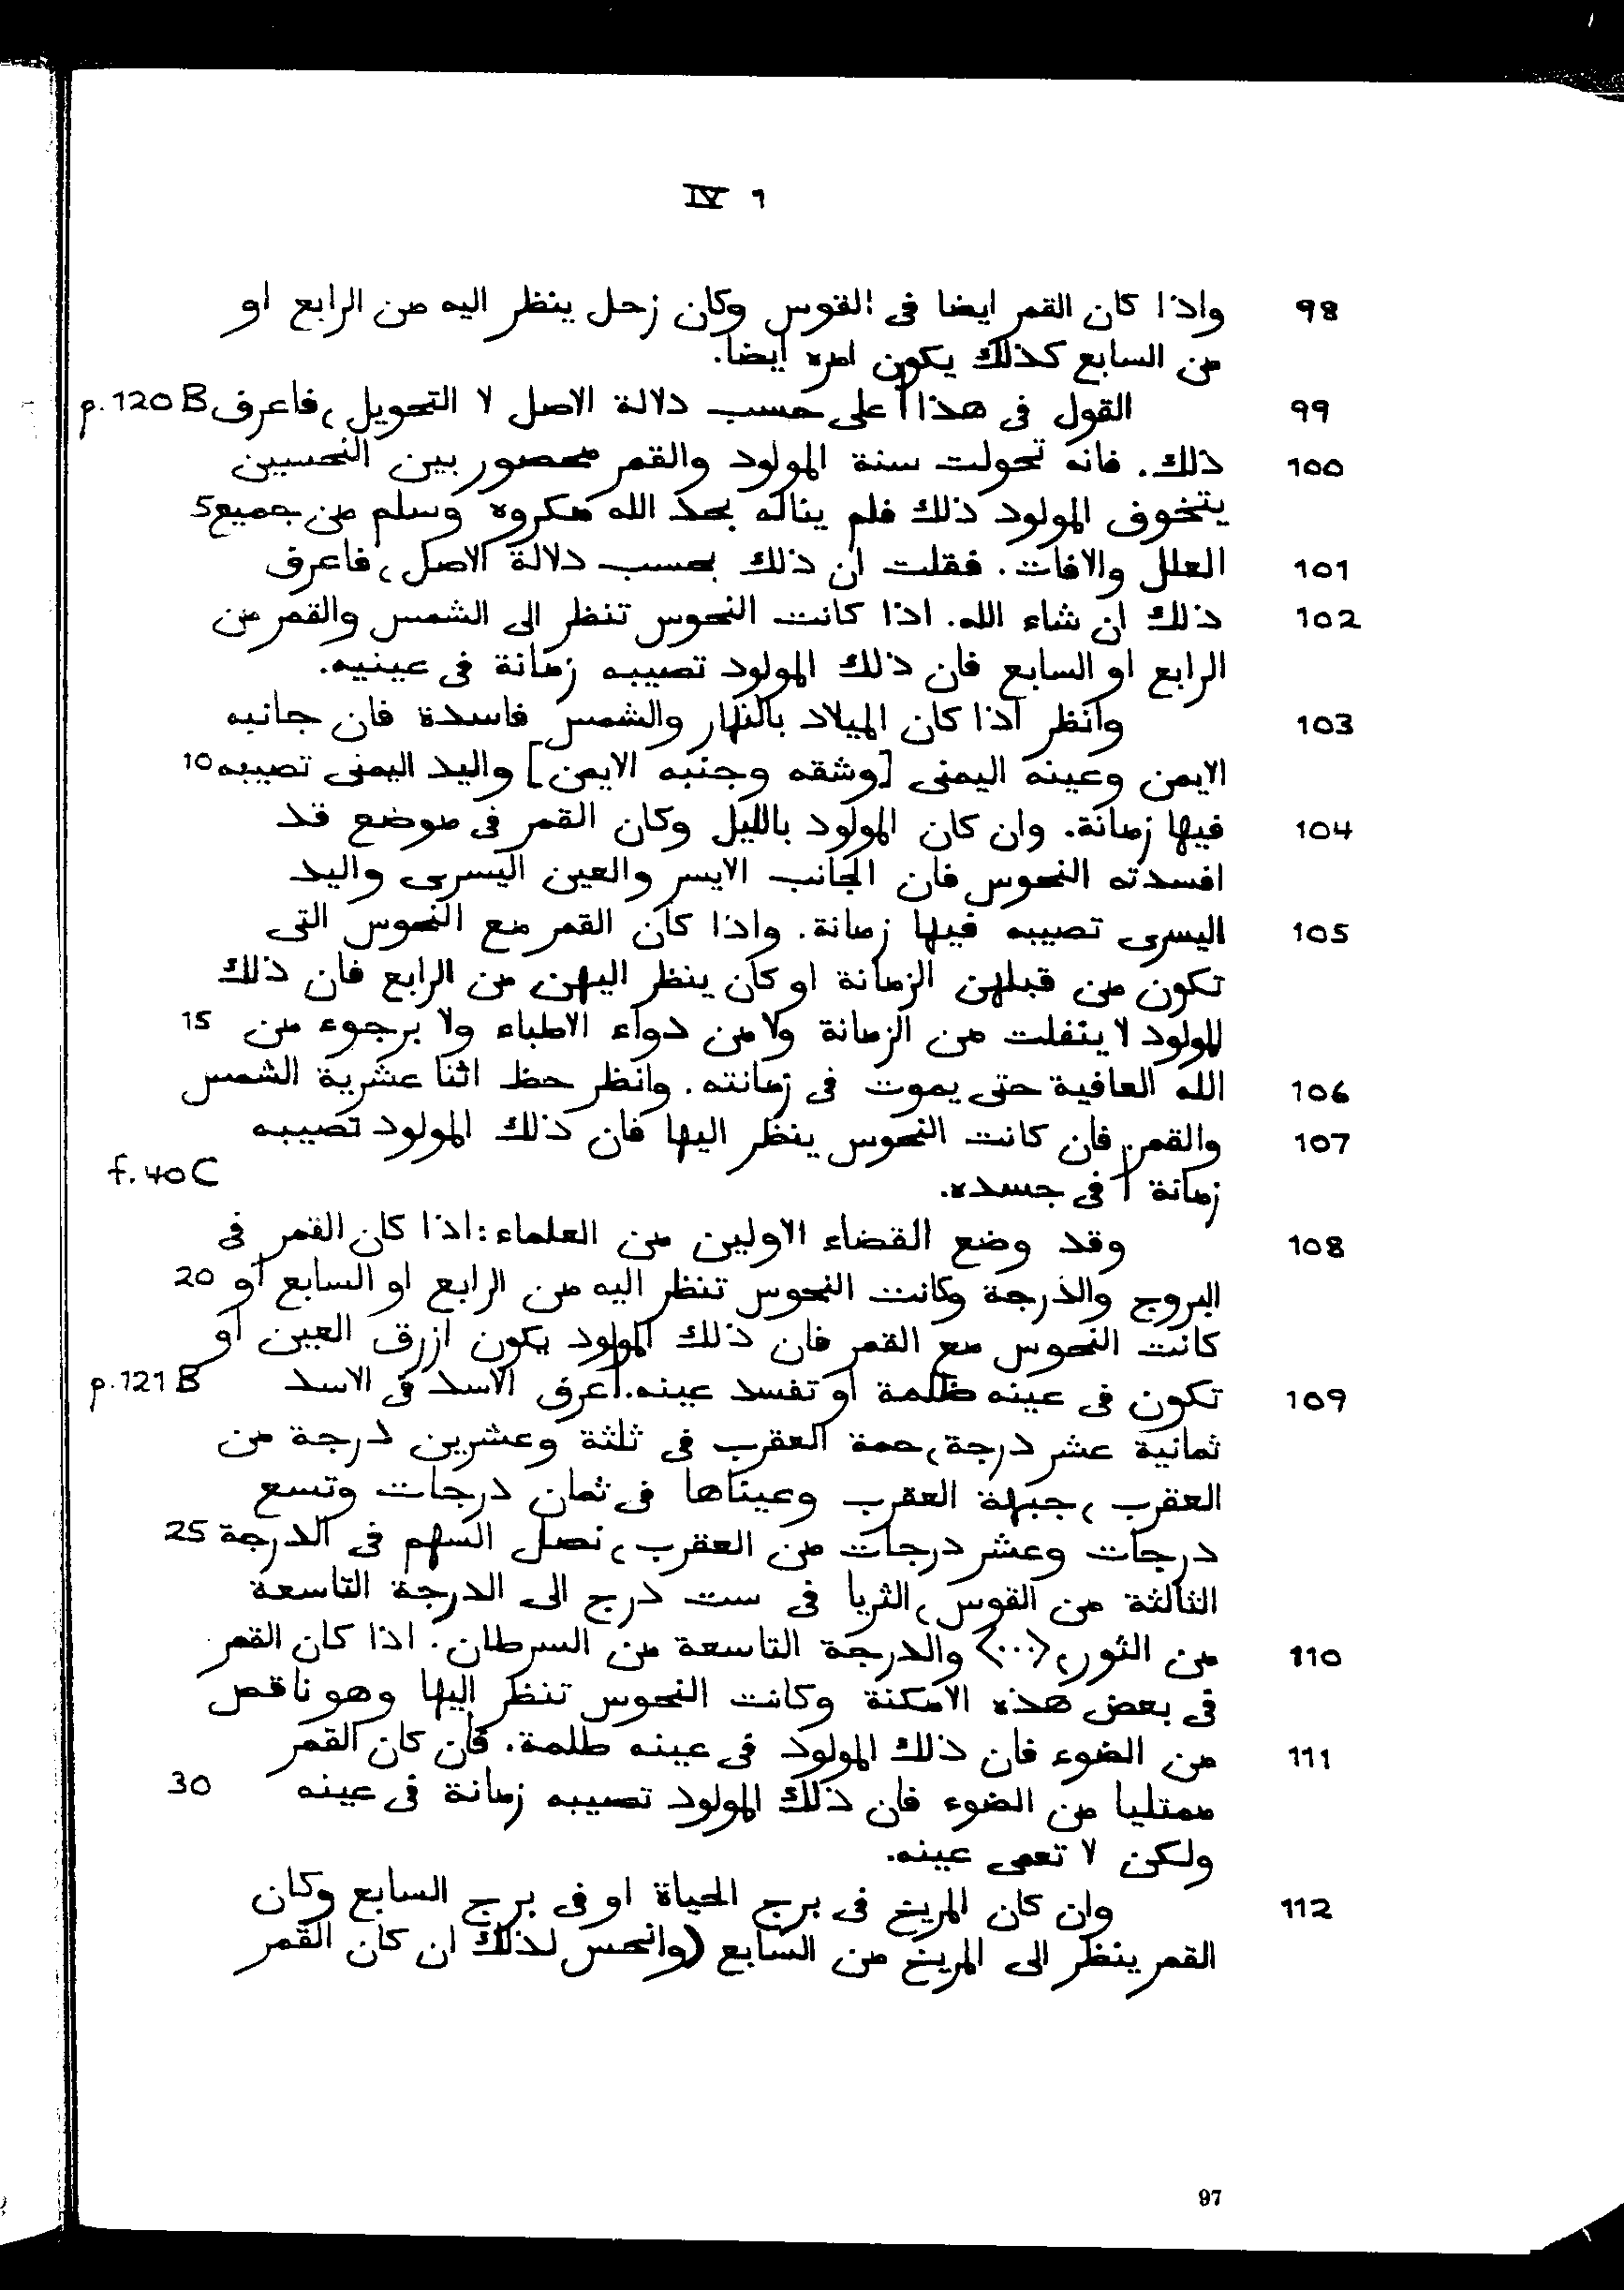 IV ٦
98 واذا كان القمر ايضا فى القوس وكان زحل ينظر اليه من الرابع او
من السابع كذلك يكون امره ايضا.
99 القول فى هذا | على حسب دلالة الاصل لا التحويل، فاعرف p. 120 B
100 ذلك. فانه تحولت سنة المولود والقمر محصور بين النحسين
يتخوف المولود ذلك فلم يناله بحد الله مكروه وسلم من جميع 5
101 العلل والافات. فقلت ان ذلك بحسب دلالة الاصل، فاعرف
102 ذلك ان شاء الله. اذا كانت النحوس تنظر الى الشمس والقمر من
الرابع او السابع فان ذلك المولود تصيبه زمانة فى عينيه.
103 وانظر اذا كان الميلاد بالنهار والشمس فاسدة فان جانبه
الايمن وعينه اليمنى [وشقه وجنبه الايمن] واليد اليمنى تصيبه 10
104 فيها زمانة. وان كان المولود بالليل وكان القمر فى موضع قد
افسدته النحوس فان الجانب الايسر والعين اليسرى واليد
105 اليسرى تصيبه فيها زمانة. واذا كان القمر مع النحوس التى
تكون من قبلهن الزمانة او كان ينظر اليهن من الرابع فان ذلك
المولود لا ينفلت من الزمانة ولا من دواء الاطباء ولا برجوء من 15
106 الله العافية حتى يموت فى زمانته. وانظر حظ اثنا عشرية الشمس
107 والقمر، فان كانت النحوس ينظر اليها فان ذلك المولود تصيبه
زمانة | فى جسده. f. 40 C
108 وقد وضع القضاء الاولين من العلماء: اذا كان القمر فى
البروج والدرجة وكانت النحوس تنظر اليه من الرابع او السابع او 20
كانت النحوس مع القمر فان ذلك المولود يكون ازرق العين او
109 تكون فى عينه ظلمة او تفسد عينه. | اعرف الاسد فى الاسد p. 121 B
ثمانية عشر درجة، حمة العقرب فى ثلثة وعشرين درجة من
العقرب، جبهة العقرب وعيناها فى ثمان درجات وتسع
درجات وعشر درجات من العقرب، نصل السهم فى الدرجة 25
الثالثة من القوس، الثريا فى ست درج الى الدرجة التاسعة
110 من الثور، <...> والدرجة التاسعة من السرطان. اذا كان القمر
فى بعض هذه الامكنة وكانت النحوس تنظر اليها وهو ناقص
111 من الضوء فان ذلك المولود فى عينه طلمة. فان كان القمر
ممتليا من الضوء فان ذلك المولود تصيبه زمانة فى عينه 30
ولكن لا تعمى عينه.
112 وان كان المريخ فى برج الحياة او فى برج السابع وكان
القمر ينظر الى المريخ من السابع (وانحس لذلك ان كان القمر
97